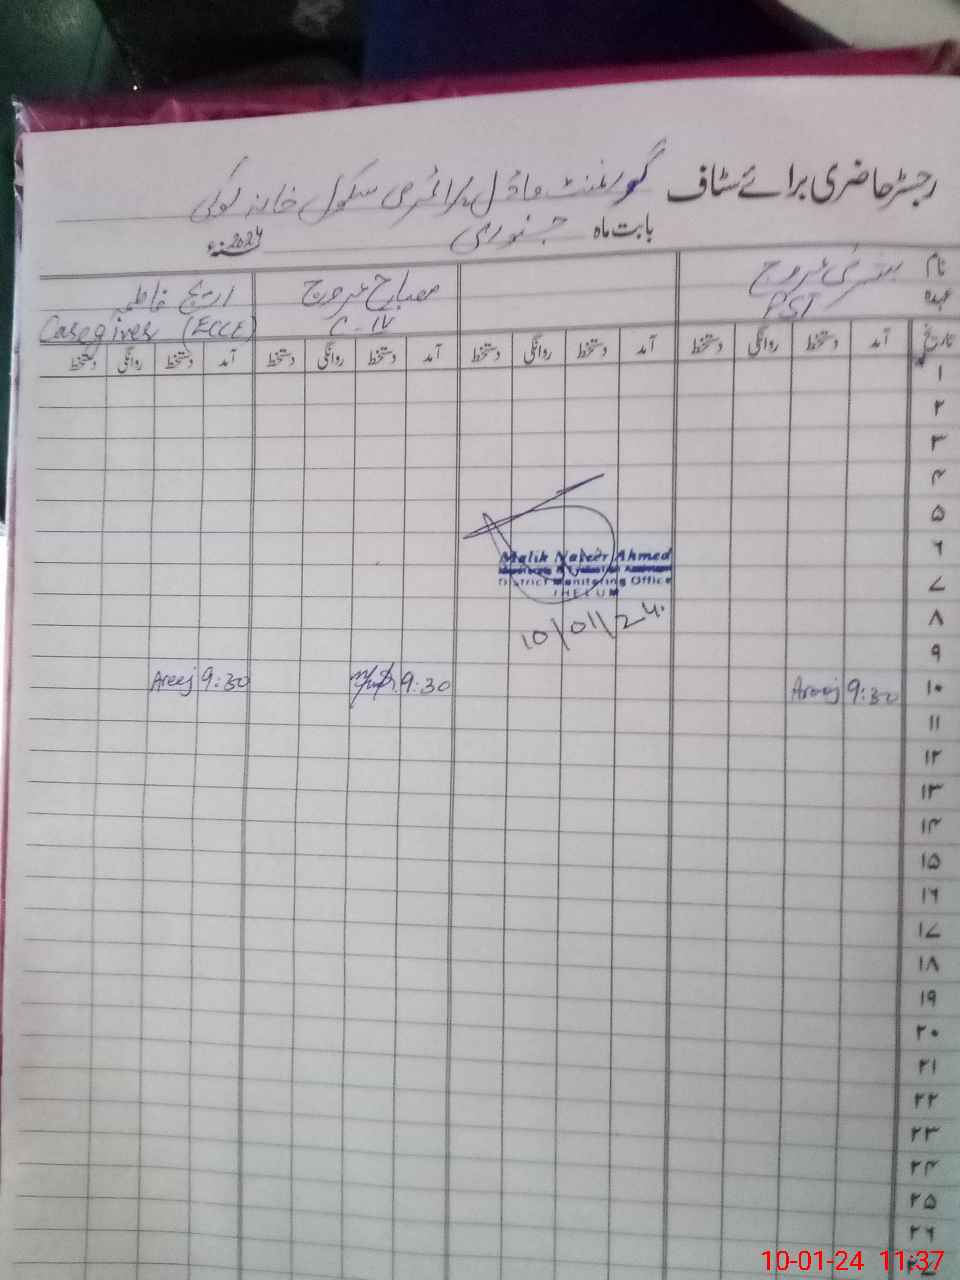 رجسٹر حاضری برائے سٹاف گورنمنٹ ماڈل پرائمری سکول خانہ بوکی
بابت ماہ جنوری 2024ء
نام بشریٰ عروج مصباح عروج اریج فاطمہ
عہدہ PST C-IV Caregiver (ECCE)
تاریخ آمد دستخط روانگی دستخط آمد دستخط روانگی دستخط آمد دستخط روانگی دستخط آمد دستخط روانگی دستخط
۱
۲
۳
۴
۵
۶
Malik Naseer Ahmed
۷
District Monitoring Office
JHELUM
۸
10/01/24
۹
۱۰ 9:30 Areej 9:30 9:30 Areej
۱۱
۱۲
۱۳
۱۴
۱۵
۱۶
۱۷
۱۸
۱۹
۲۰
۲۱
۲۲
۲۳
۲۴
۲۵
۲۶
10-01-24 11:37